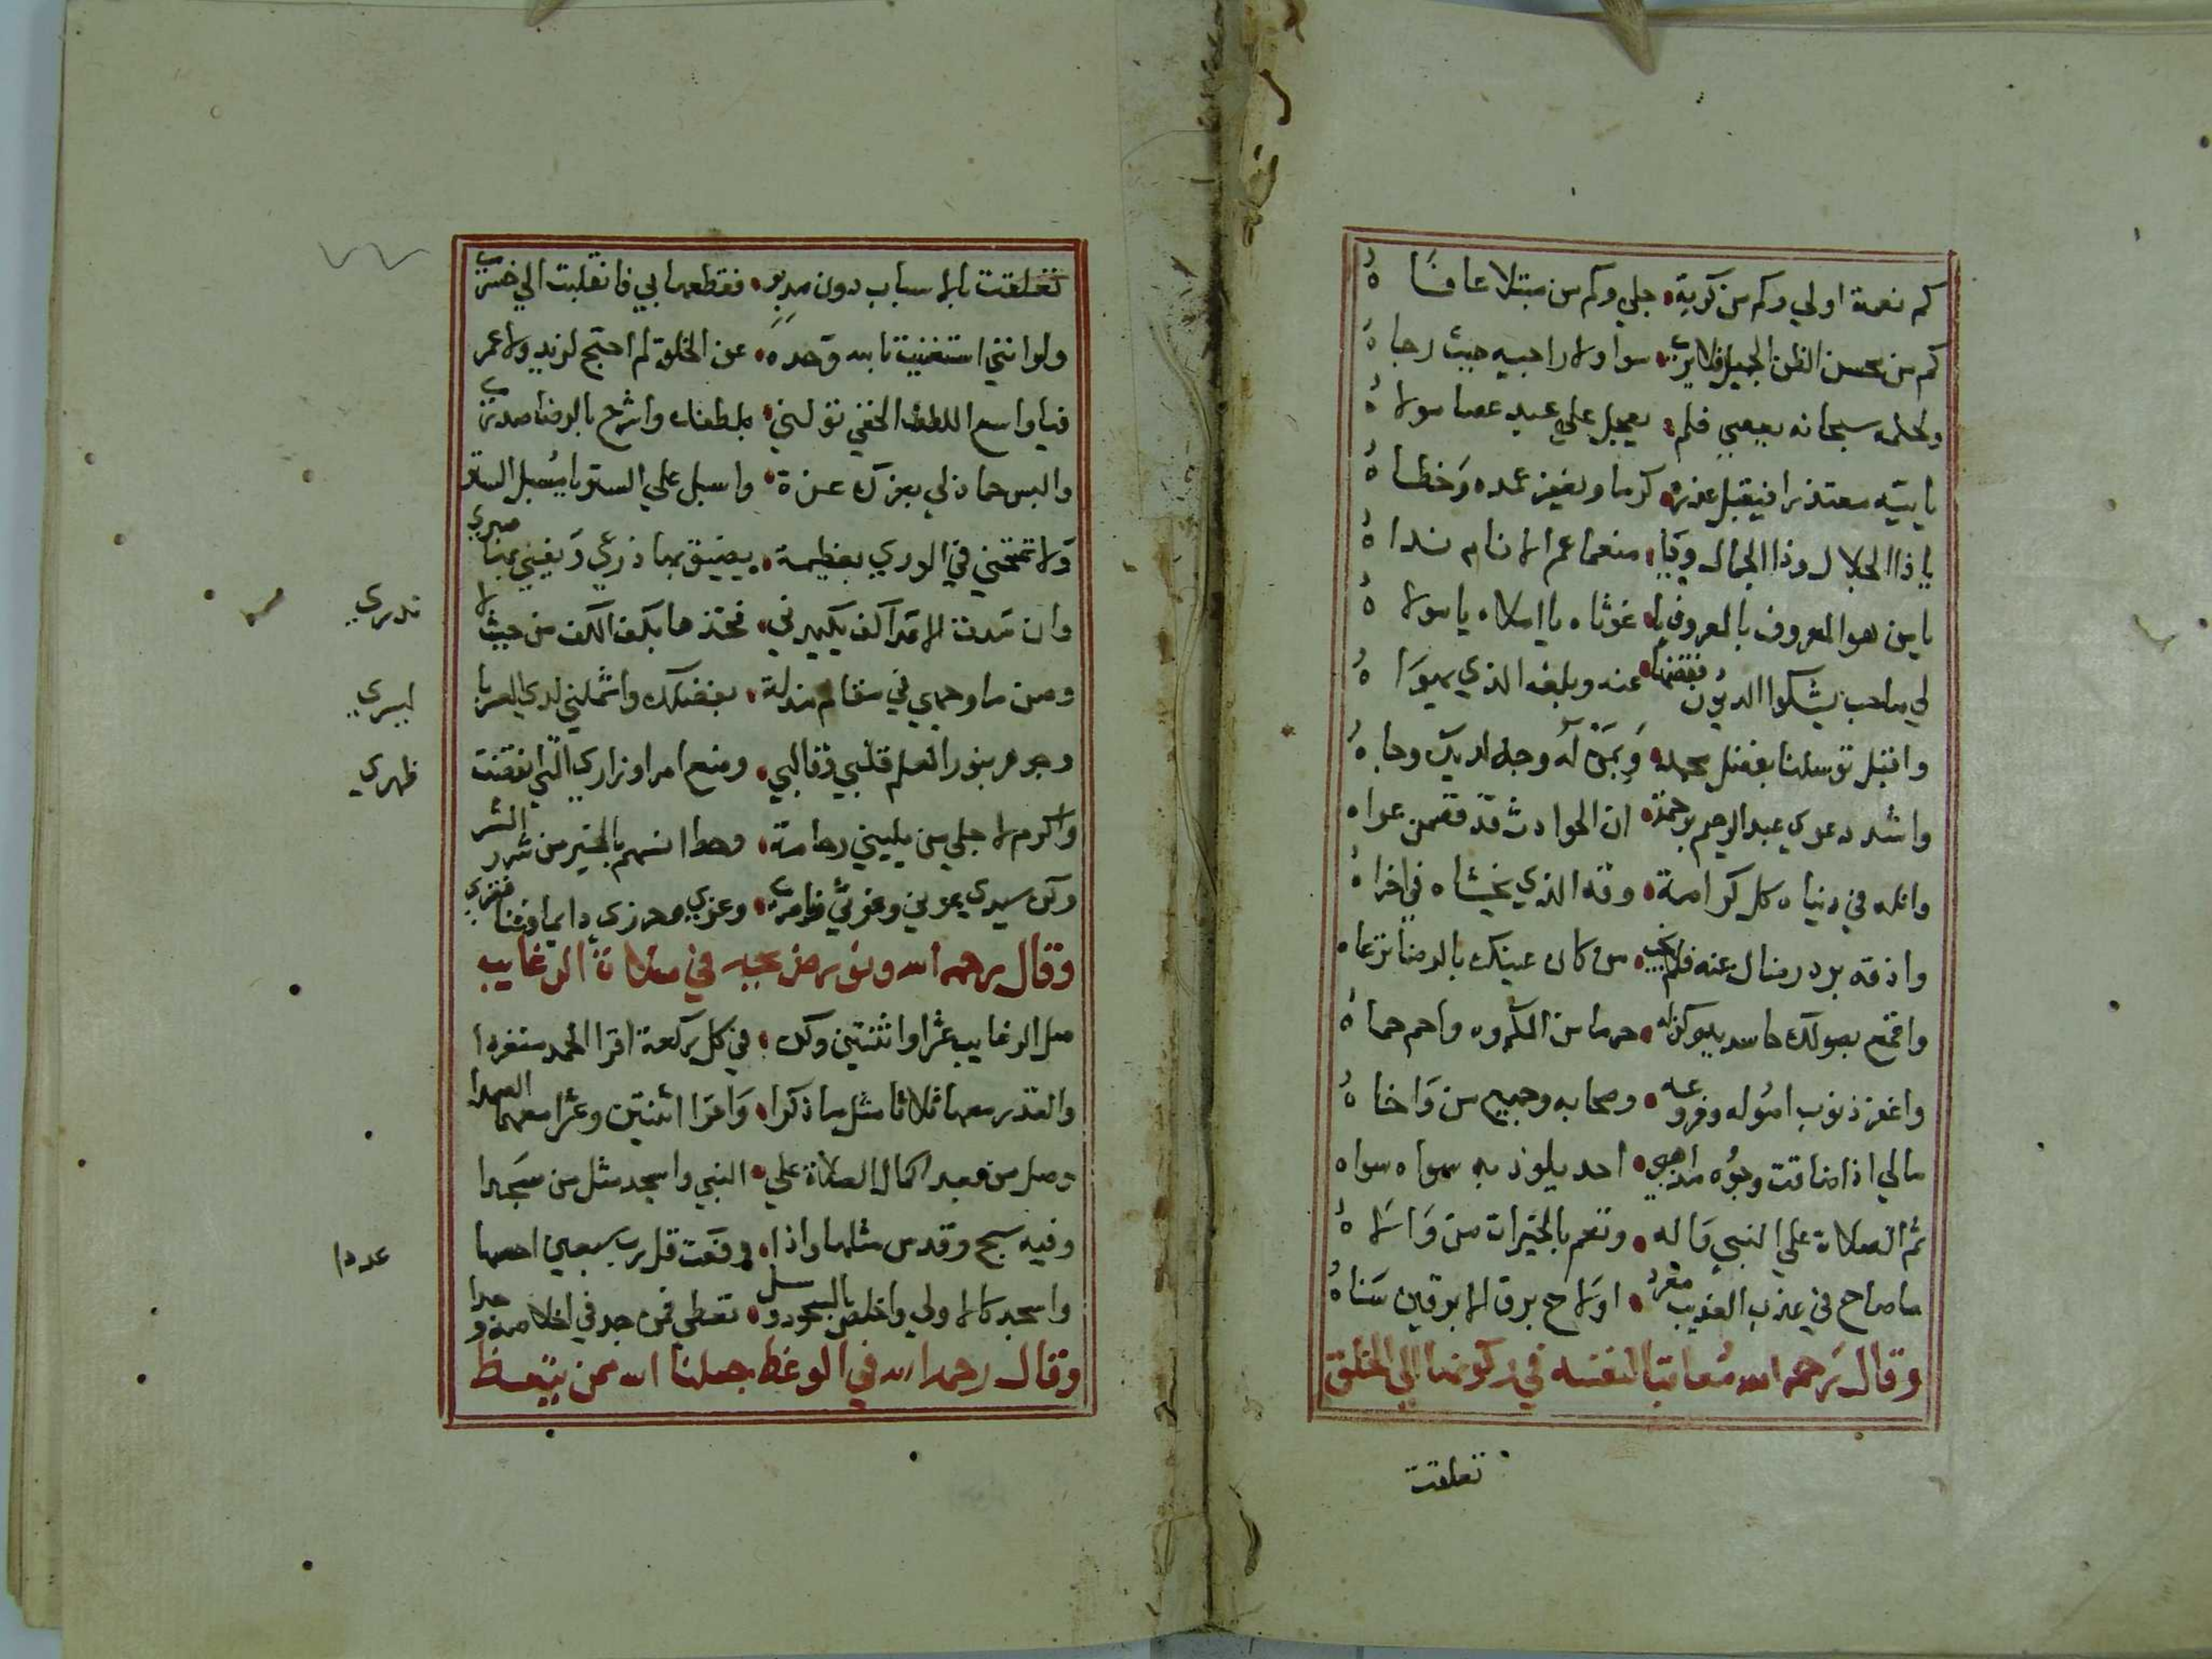 كم نعمة اولي وكم من كربة • جلي وكم من مبتلا عافاه
كم من محسن الظن الجميل فلا يرى • سوا ولا راجيه حيث رجاه
ولحلمه سبحانه يعصي فلم • يعجل علي عبد عصا مولاه
ياتيه معتذرا فيقبل عذره • كرما ويغفر عمده وخطاه
يا ذا الجلال وذا الجمال ويا • منعما عم الانام نداه
يا من هو المعروف بالمعروف يا • غوثاه يا املاه يا مولاه
لي صاحب يشكوا الديون فقضها • عنه وبلغه الذي يهواه
واقبل توسلنا بفضل محمد • وبمن له وجه لديك وجاه
واشدد عري عبد الرحيم برحمة • ان الحوادث قد فصمن عراه
وانله في دنياه كل كرامة • وقه الذي يخشاه في اخراه
واذقه برد رضاك عنه فلم يخب • من كان عينك بالرضا ترعاه
واقمع بصولك حاسديه وكن له • حرما من المكروه واحم حماه
واغفر ذنوب اصوله وفروعه • وصحابه وجميع من واخاه
مالي اذا ضاقت وجوه مذاهبي • احد يلوذ به سواه سواه
ثم الصلاة علي النبي واله • وتعم بالخيرات من والاه
ما صاح في عذب العذيب مغرد • اولاح برق الابرقين سناه
وقال رحمه الله معاتبا لنفسه في ركونها الي الخلق
تعلقت
تعلقت بالاسباب دون مدبر • فقطعها بي فانقلبت الي خسري
ولو انني استغنيت بالله وحده • عن الخلق لم احتج لزيد ولا عمر
فيا واسع اللطف الخفي تولني • بلطفك واشرح بالرضا صدري
والبس حما ذلي بعزك عزة • واسبل علي الستر يا مسبل الستر
ولا تمتحني في الوري بعظيمة • يضيق بها ذرعي ويفني بها صبري
وان مدت الاعدا اكف يكيدني • فخذها بكف الكف من حيث لا
تدري
وصن ماوجهي في مقام مذلة • بفضلك واشملني لدي العسر يا
ليسري
وجوهر بنور العلم قلبي وقالبي • وضع امر اوزاري التي انقضت
ظهري
واكرم لاجلي من يليني رحامة • وحط انسهم بالخير من شرر الشر
وكن سيدي عوني وغوثي وناصري • وعزي وحرزي دايما وغنا فقري
وقال رحمه الله ونور ضريحه في صلاة الرغايب
صل الرغايب عشرا واثنتين وكن • في كل ركعة اقرا الحمد منفردا
والقدر معها ثلاثا مثل ما ذكرا • واقرا اثنتين وعشرا معهما الصمدا
وصل من بعد اكمال الصلاة علي • النبي واسجد مثل من سجدا
وفيه سبح وقدس مثلها واذا • رفعت قل رب سبعين احصها
عددا
واسجد كالاولي واخلص بالسجود وسل • تعطي فمن جد في اخلاصه وجدا
وقال رحمه الله في الوعظ جعلنا الله ممن يتعظ